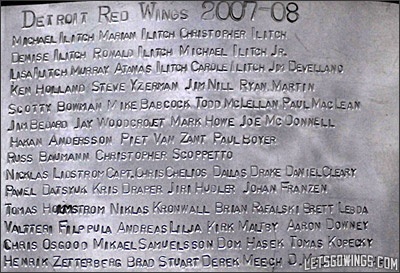 DETROIT RED WINGS 2007-08
MICHAEL ILITCH MARIAN ILITCH CHRISTOPHER ILITCH
DENISE ILITCH RONALD ILITCH MICHAEL ILITCH JR.
LISA ILITCH MURRAY ATANAS ILITCH CAROLE ILITCH JIM DEVELLANO
KEN HOLLAND STEVE YZERMAN JIM NILL RYAN MARTIN
SCOTTY BOWMAN MIKE BABCOCK TODD MCLELLAN PAUL MACLEAN
JIM BEDARD JAY WOODCROFT MARK HOWE JOE MCDONNELL
HAKAN ANDERSSON PIET VAN ZANT PAUL BOYER
RUSS BAUMANN CHRISTOPHER SCOPPETTO
NICKLAS LIDSTROM CAPT. CHRIS CHELIOS DALLAS DRAKE DANIEL CLEARY
PAVEL DATSYUK KRIS DRAPER JIRI HUDLER JOHAN FRANZEN
TOMAS HOLMSTROM NIKLAS KRONWALL BRIAN RAFALSKI BRETT LEBDA
VALTTERI FILPPULA ANDREAS LILJA KIRK MALTBY AARON DOWNEY
CHRIS OSGOOD MIKAEL SAMUELSSON DOM HASEK TOMAS KOPECKY
HENRIK ZETTERBERG BRAD STUART DEREK MEECH
LETSGOWINGS.COM